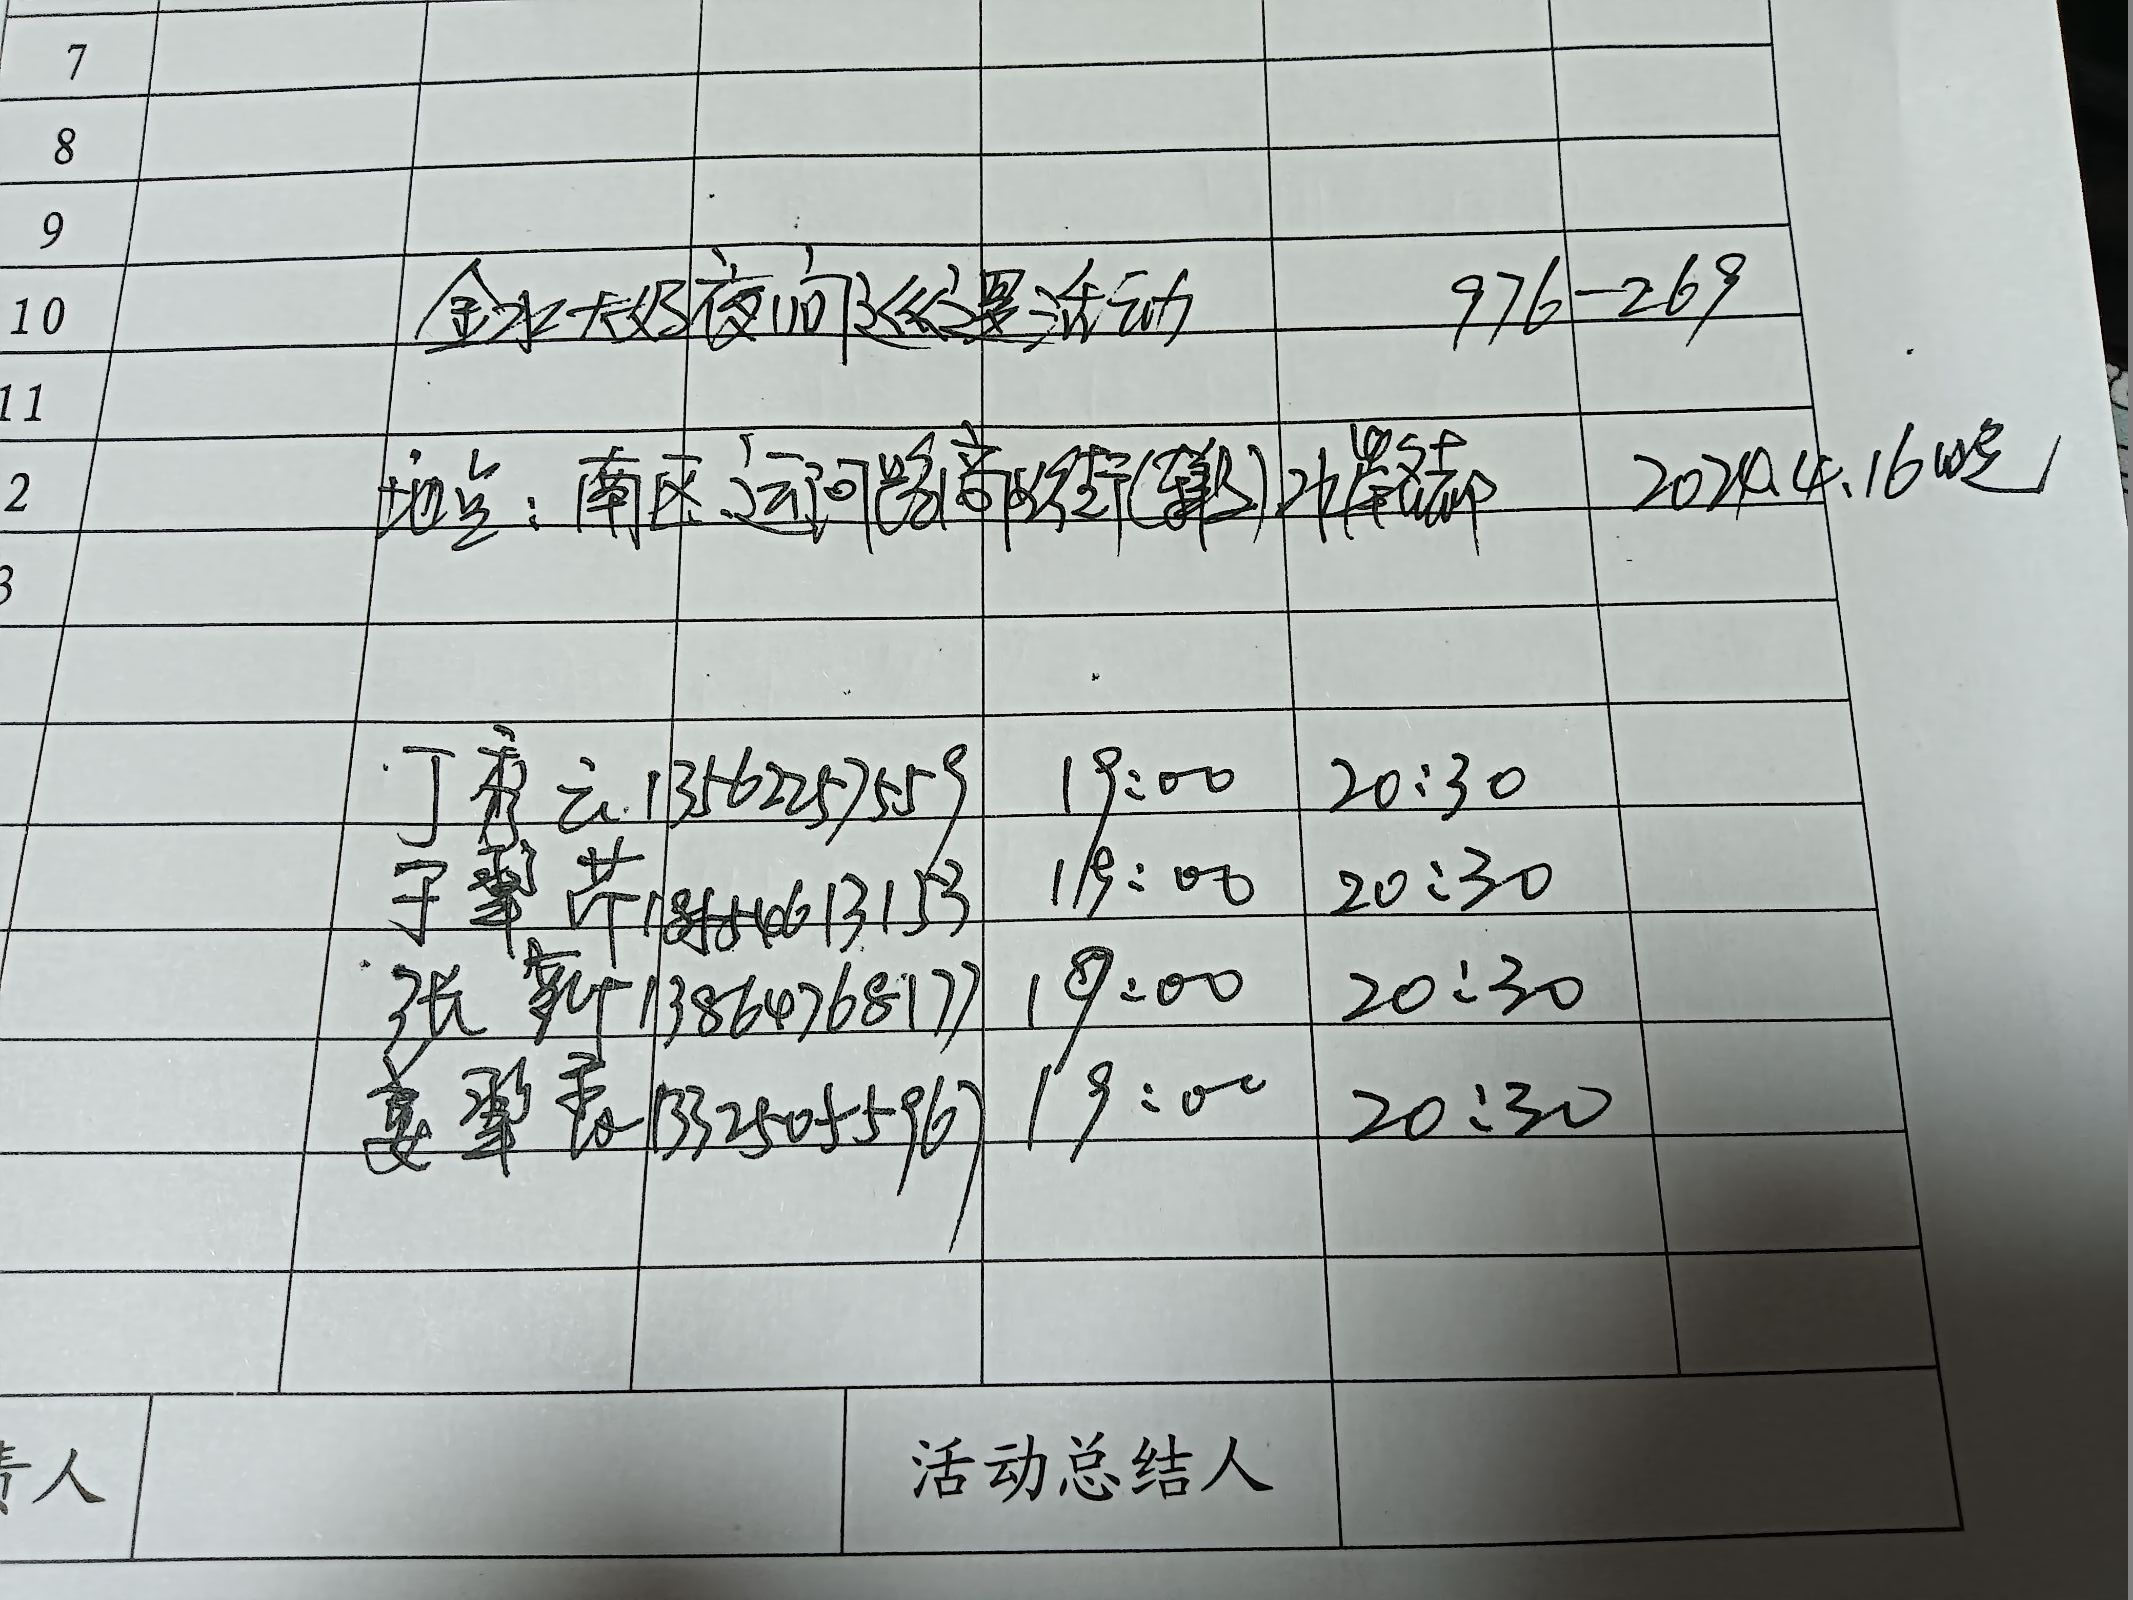 7
8
9
10 金水大妈夜间巡逻活动 976-269
11
2 地点：南区运河路商业街 2024.4.16晚
3
丁秀云 13562257559 19:00 20:30
于翠芹 19:00 20:30
张新 13864768177 19:00 20:30
姜翠香 13325055967 19:00 20:30
责人 活动总结人